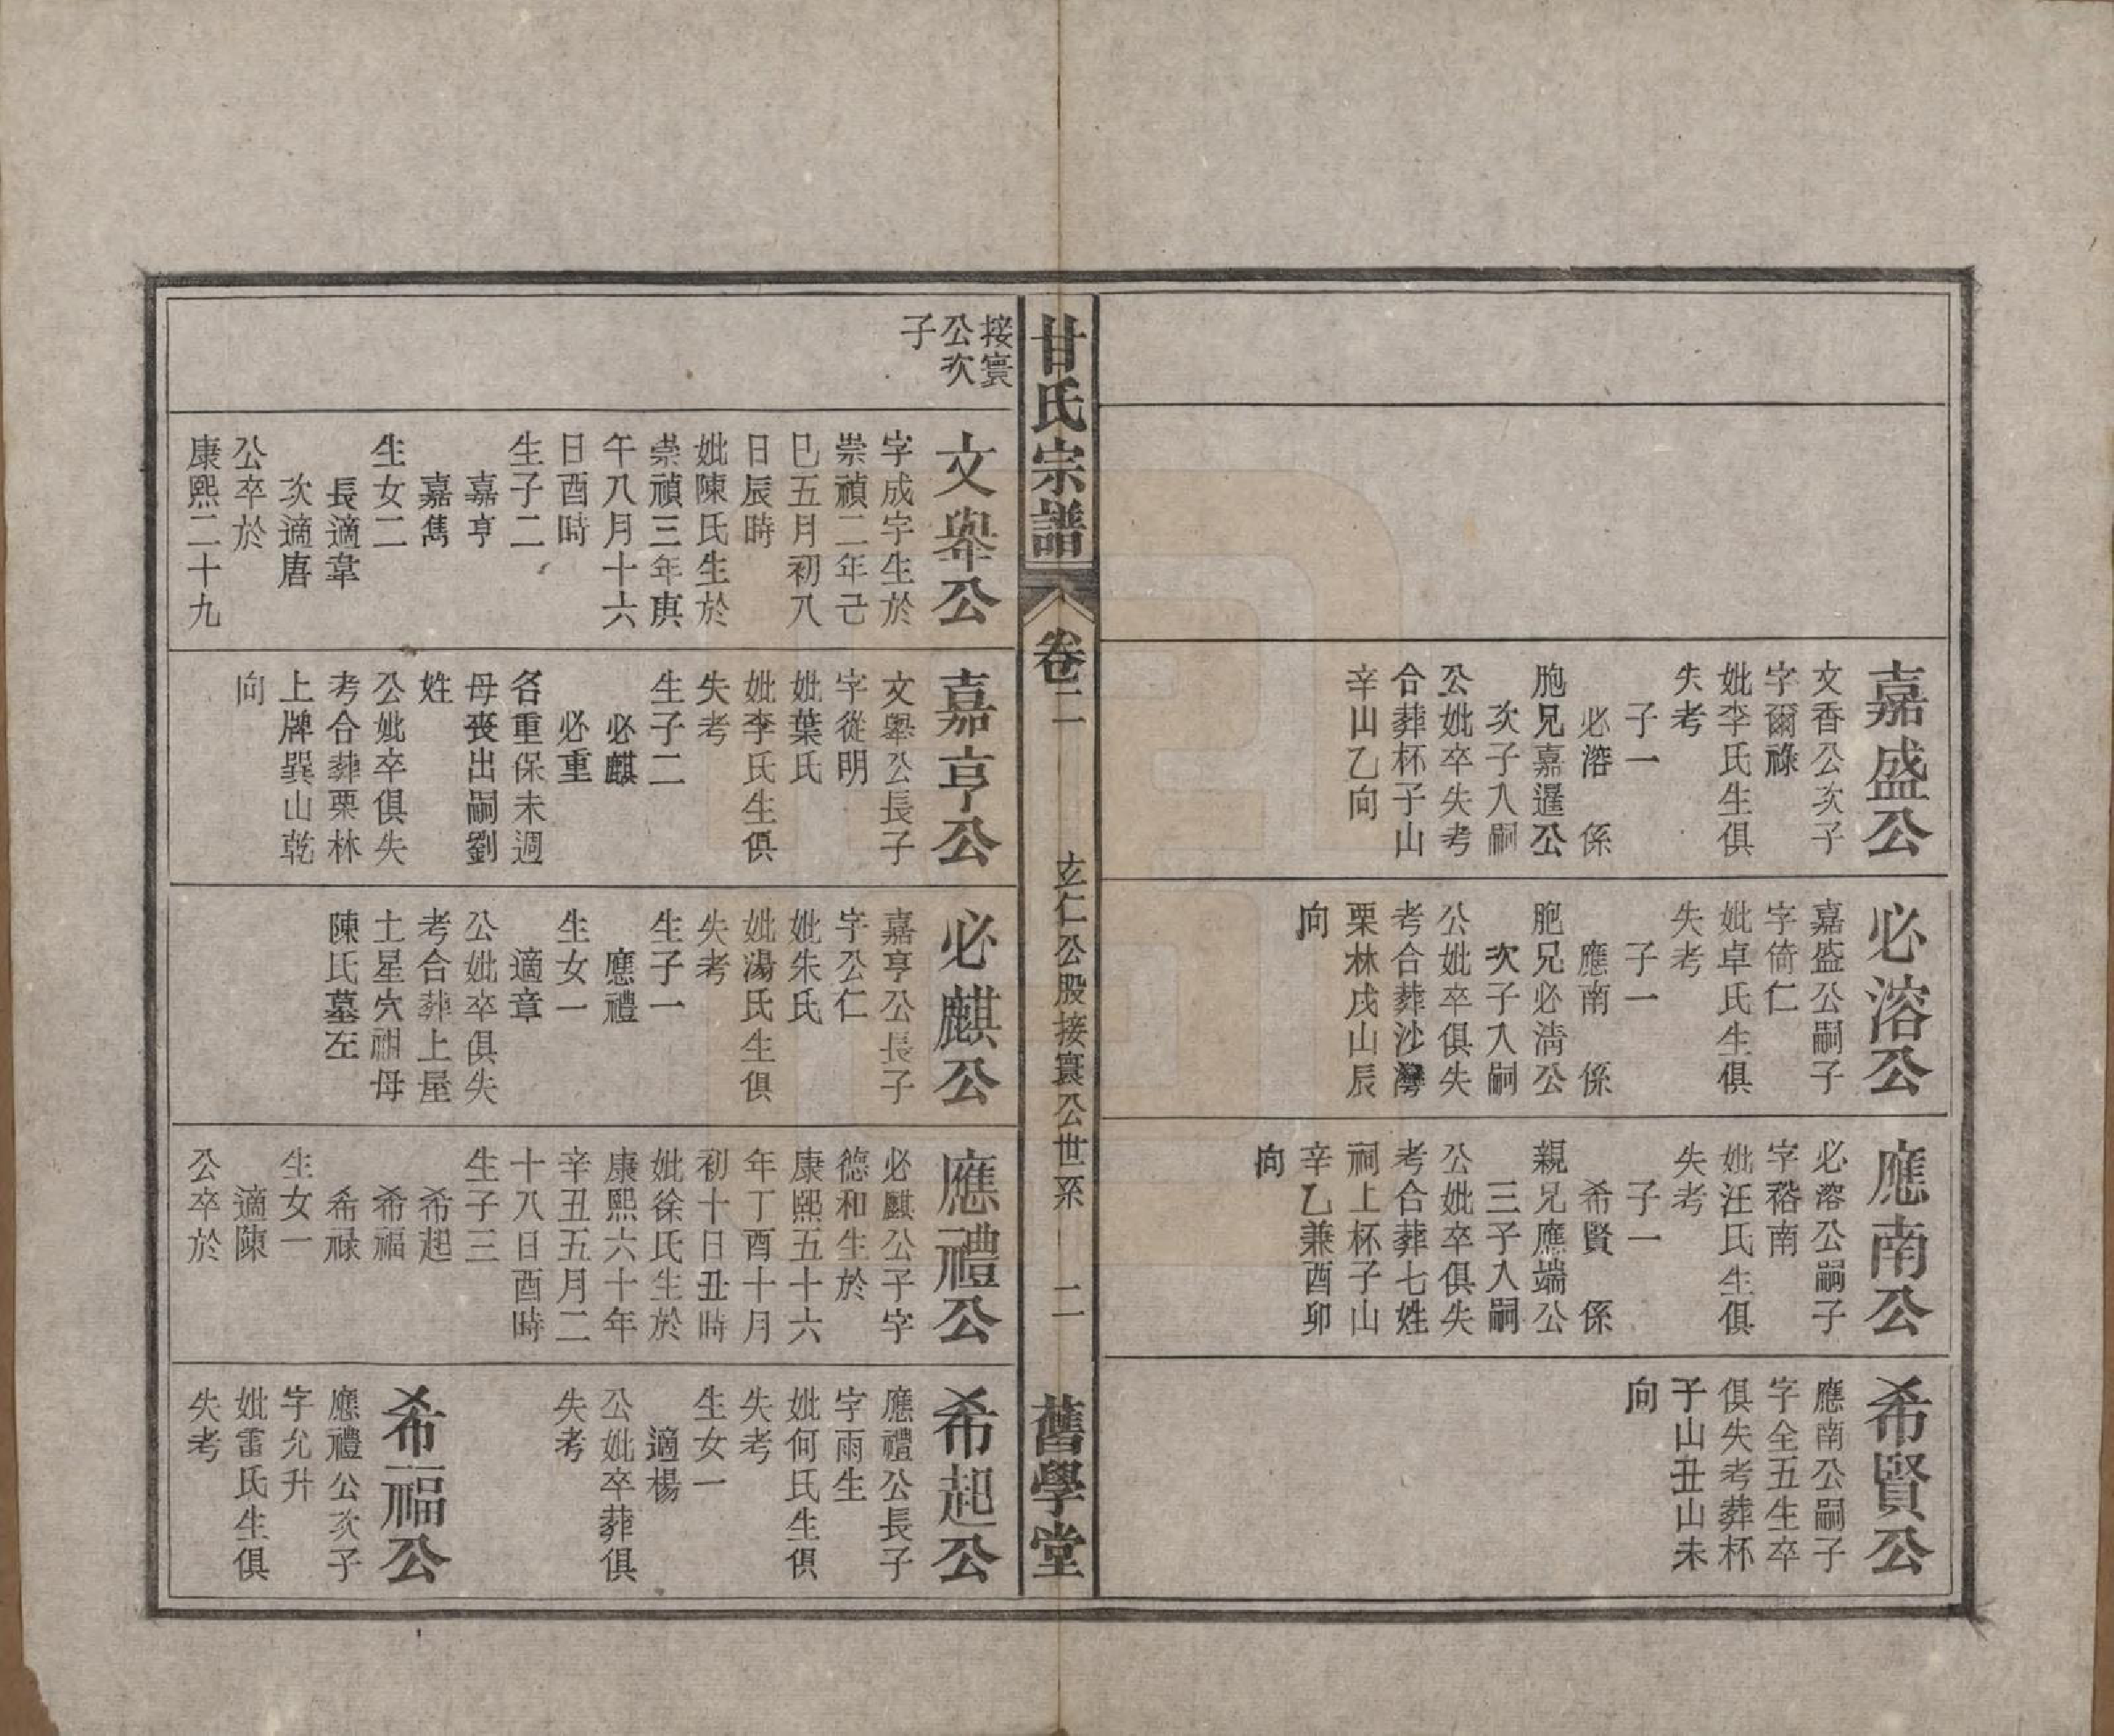 嘉盛公
文香公次子
字爾祿
妣李氏生俱
失考
子一
必溶　係
胞兄嘉暹公
次子入嗣
公妣卒失考
合葬杯子山
辛山乙向
必溶公
嘉盛公嗣子
字倚仁
妣卓氏生俱
失考
子一
應南　係
胞兄必淸公
次子入嗣
公妣卒俱失
考合葬沙灣
栗林戌山辰
向
應南公
必溶公嗣子
字裕南
妣汪氏生俱
失考
子一
希賢　係
親兄應端公
三子入嗣
公妣卒俱失
考合葬七姓
祠上杯子山
辛乙兼酉卯
向
希賢公
應南公嗣子
字全五生卒
俱失考葬杯
子山丑山未
向
甘氏宗譜
卷二
玄仁公股接寰公世系
二
舊學堂
接寰
公次
子
文舉公
字成字生於
崇禎二年己
巳五月初八
日辰時
妣陳氏生於
崇禎三年庚
午八月十六
日酉時
生子二
嘉亨
嘉雋
生女二
長適韋
次適唐
公卒於
康熙二十九
嘉亨公
文舉公長子
字從明
妣葉氏
妣李氏生俱
失考
生子二
必麒
必重
名重保未週
母喪出嗣劉
姓
公妣卒俱失
考合葬栗林
上牌巽山乾
向
必麒公
嘉亨公長子
字公仁
妣朱氏
妣湯氏生俱
失考
生子一
應禮
生女一
適章
公妣卒俱失
考合葬上屋
土星穴祖母
陳氏墓左
應禮公
必麒公子字
德和生於
康熙五十六
年丁酉十月
初十日丑時
妣徐氏生於
康熙六十年
辛丑五月二
十八日酉時
生子三
希起
希福
希祿
生女一
適陳
公卒於
希起公
應禮公長子
字雨生
妣何氏生俱
失考
生女一
適楊
公妣卒葬俱
失考
希福公
應禮公次子
字允升
妣雷氏生俱
失考